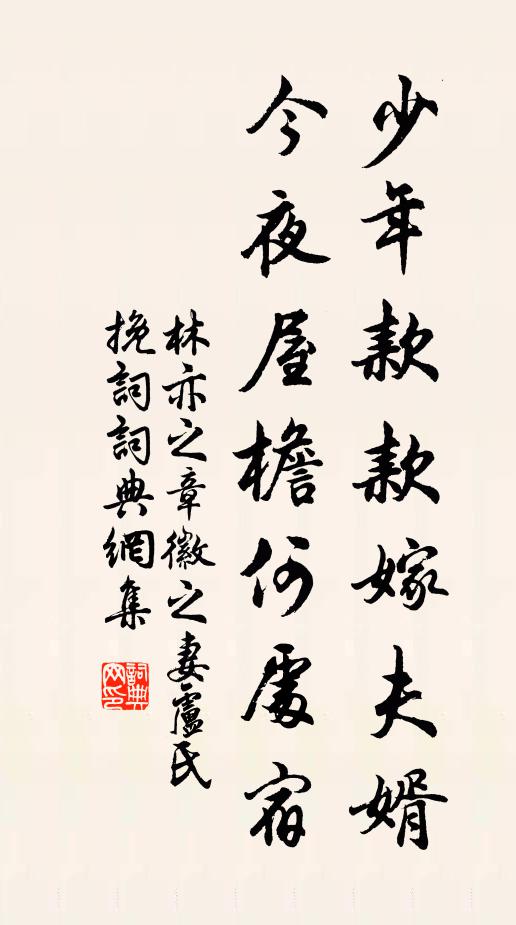 少年款款嫁夫婿
今夜屋檐何處宿
林亦之章徽之妻盧氏
挽詞詞典網集
詞典網印